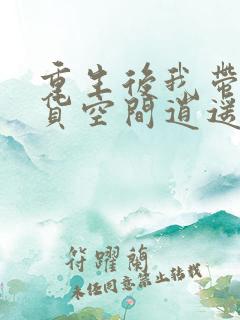 重生後我帶
貨空間逍遙
符躍蘭
未經同意禁止轉載